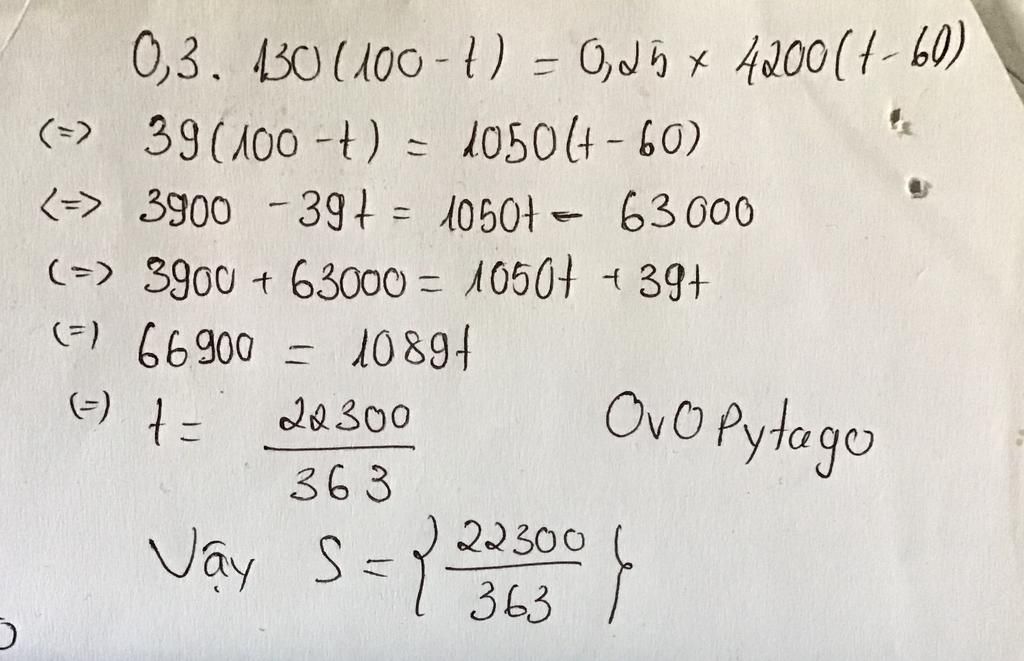 0,3. 130(100-t) = 0,25 × 4200(t-60)
<=> 39(100-t) = 1050(t-60)
<=> 3900 - 39t = 1050t - 63000
<=> 3900 + 63000 = 1050t + 39t
(=) 66900 = 1089t
(=) t = 22300/363
OvO Pytago
Vậy S = {22300/363}